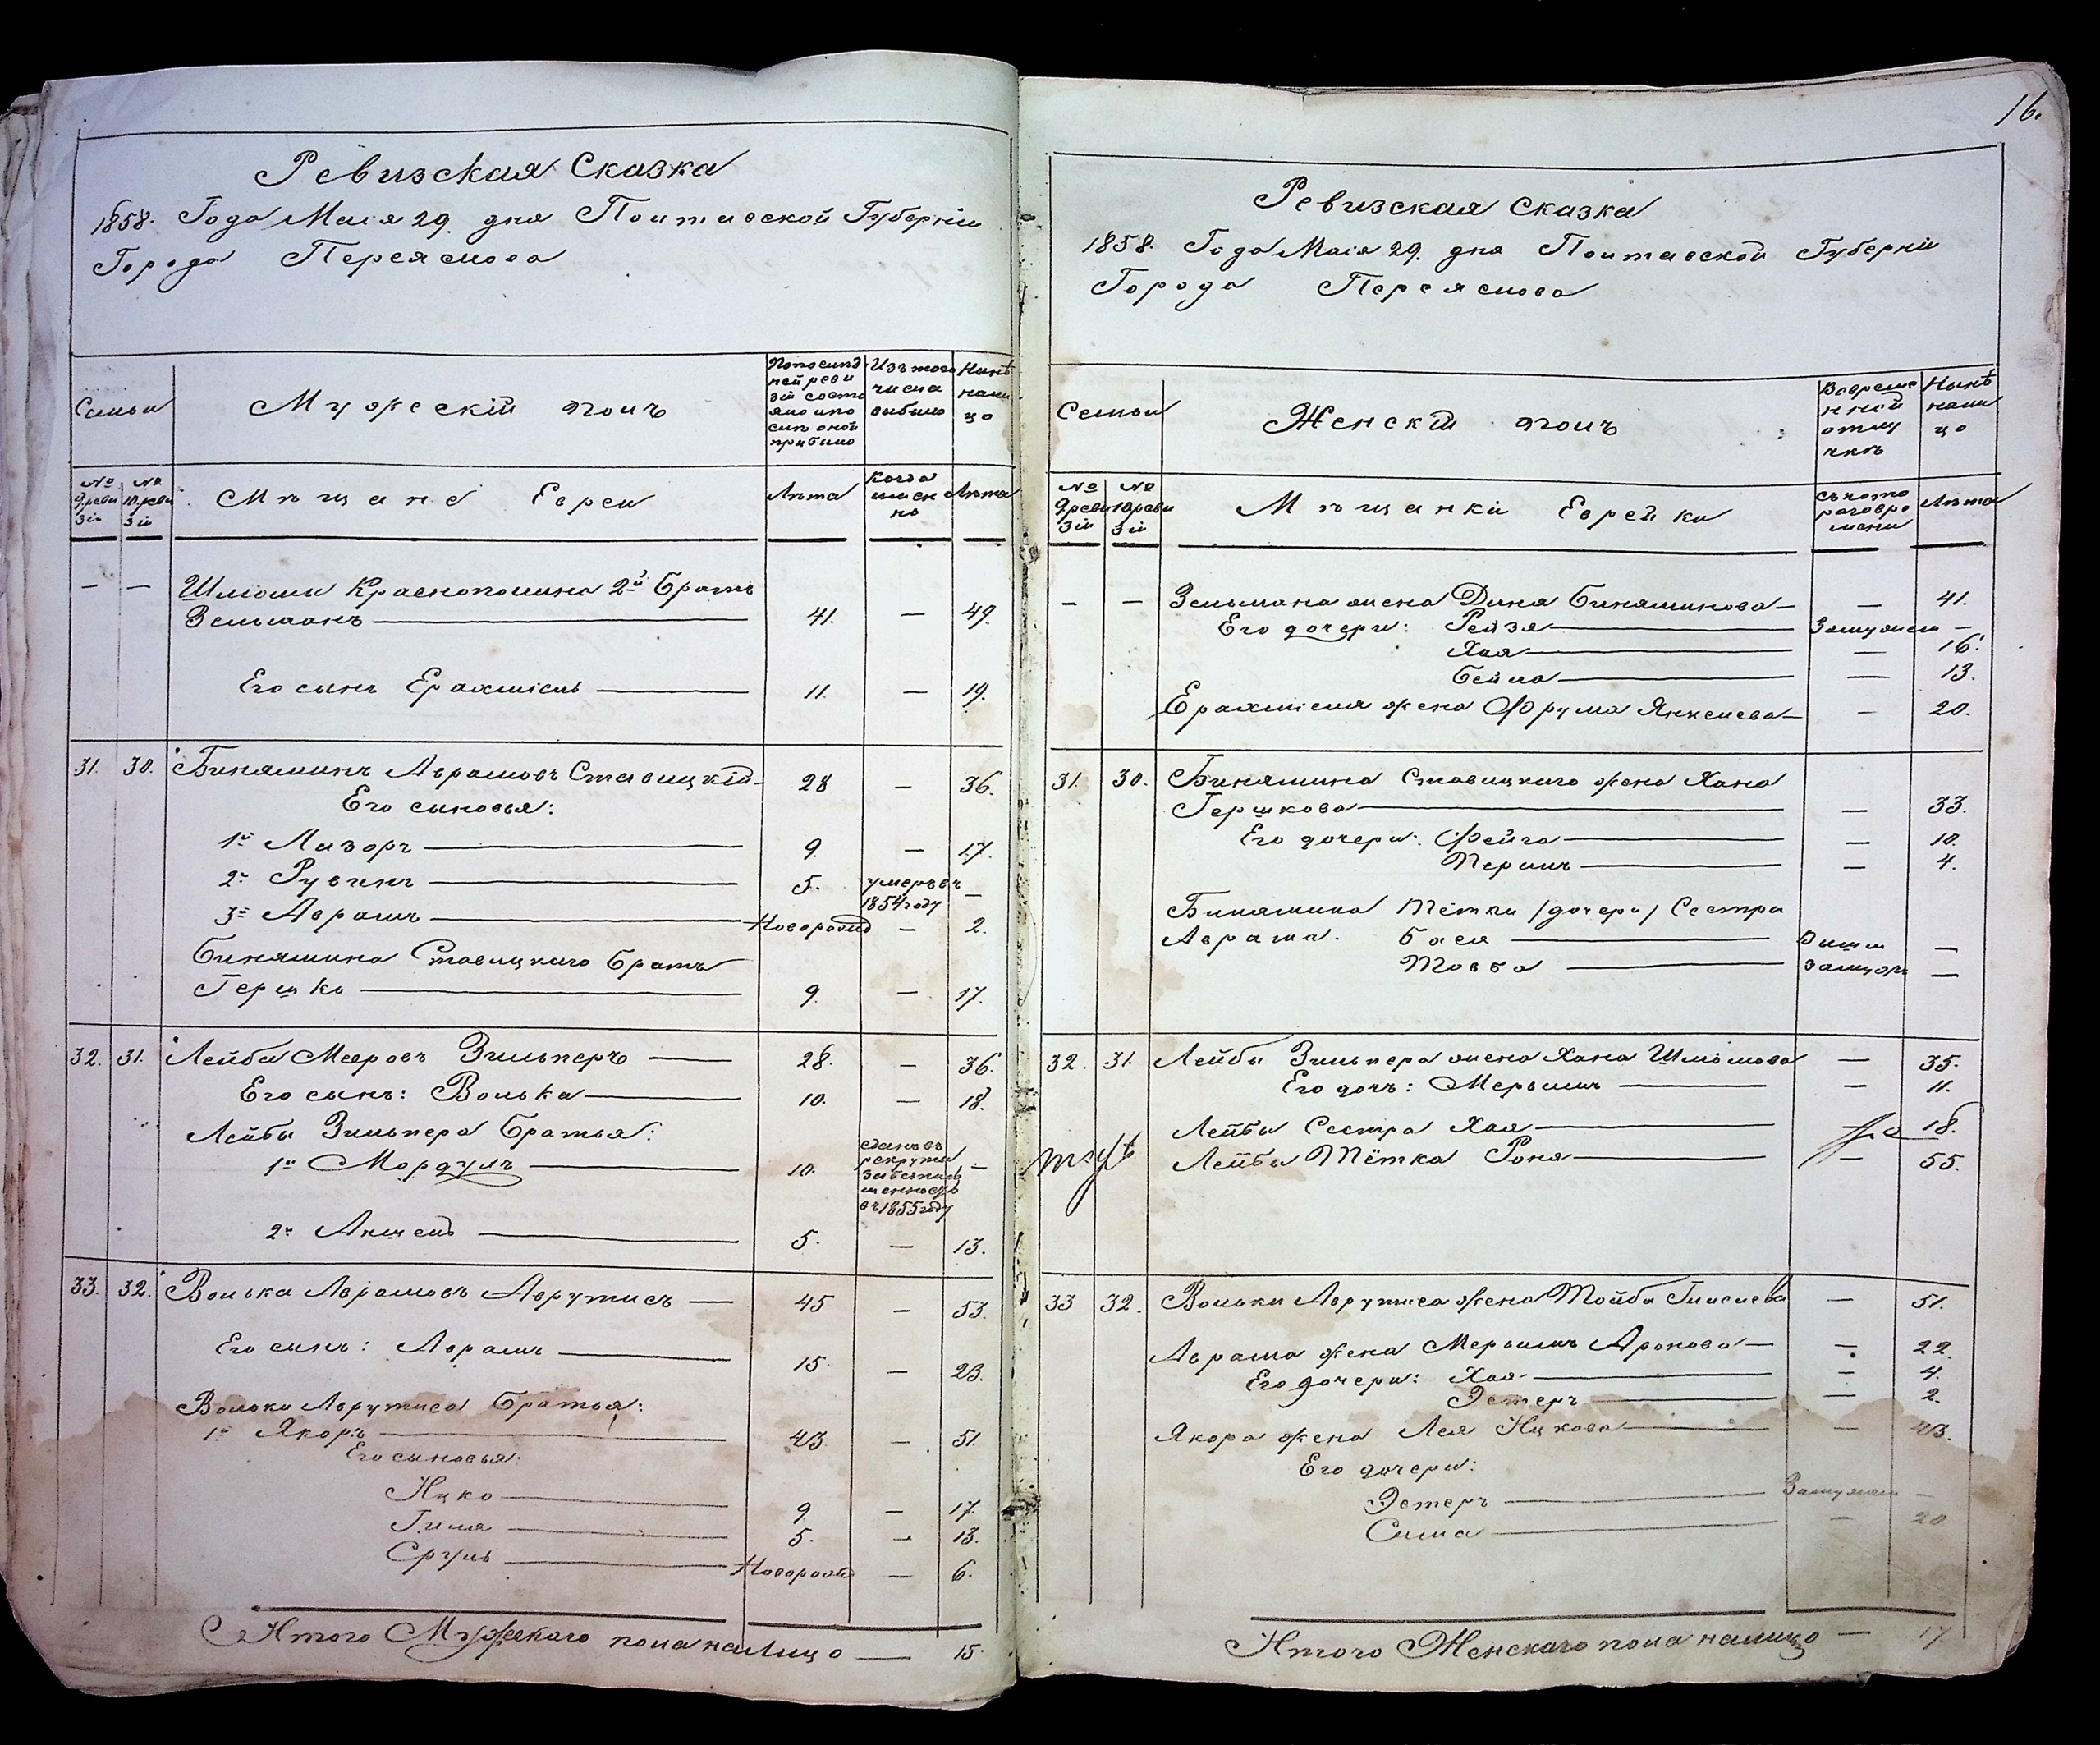 Ревизская Сказка
1858. Года Маія 29. дня Полтавской Губерніи
Города Переяслова
Семьи
Мужескій полъ
По послед
ней реви
зіи состо
яло и по
слѣ оной
прибыло
Изъ того
числа
выбыло
Нынѣ
нали
цо
№
9 реви
зіи
№
10 реви
зіи
Мѣщане Евреи
Лѣта
Когда
имен
но
Лѣта
— — Шліомы Краснополина 2й Братъ
Зельманъ 41. — 49.
Его сынъ Ерахміель 11. — 19.
31. 30. Биняминъ Аврамовъ Ставицкій 28 — 36.
Его сыновья:
1й Лазоръ 9. — 17.
2й Рувинъ 5. умеръ въ 1854 году —
3й Аврамъ Новорожд — 2.
Бинямина Ставицкаго Братъ
Гершко 9. — 17.
32. 31. Лейба Мееровъ Зильперъ 28. — 36.
Его сынъ: Волька 10. — 18.
Лейбы Зильпера Братья:
1й Мордухъ 10. сданъ въ
рекруты
въ 1855 году —
2й Аншель 5. — 13.
33. 32. Волька Аврамовъ Аврутисъ 45 — 53.
Его сынъ: Аврамъ 15 — 23.
Вольки Аврутиса Братья:
1й Якоръ 43. — 51.
Его сыновья:
Ицко 9 — 17.
Гиля 5. — 13.
Сруль Новорожд — 6.
Итого Мужескаго пола налицо — 15.
16.
Ревизская Сказка
1858. Года Маія 29. дня Полтавской Губерніи
Города Переяслова
Семьи
Женскій полъ
Во време
нной
отлу
чкѣ
Нынѣ
нали
цо
№
9 реви
зіи
№
10 реви
зіи
Мѣщанки Еврейки
съ кото
раго вре
мени
Лѣта
— — Зельмана жена Диня Биняминова — — 41.
Его дочери: Рейзя Замужем —
Хая — 16.
Бейла — 13.
Ерахміеля жена Фрума Янкелева — — 20.
31. 30. Бинямина Ставицкаго жена Хана
Гершкова — 33.
Его дочери: Фейга — 10.
Перлъ — 4.
Бинямина тётки /дочери/ Сестры
Аврама. Бася вышли —
Товба замужъ —
32. 31. Лейбы Зильпера жена Хана Шліомова — 35.
Его дочь: Мерьямъ — 11.
Лейбы Сестра Хая — 18.
Лейбы Тётка Роня — 55.
33 32. Вольки Аврутиса жена Тойба — 51.
Аврама жена Мерьямъ Аронова — — 22.
Его дочери: Хая — 4.
Эстеръ — 2.
Якора жена Лея Ицкова — 43.
Его дочери:
Эстеръ Замужем —
Сима — 20
Итого Женскаго пола налицо — 17